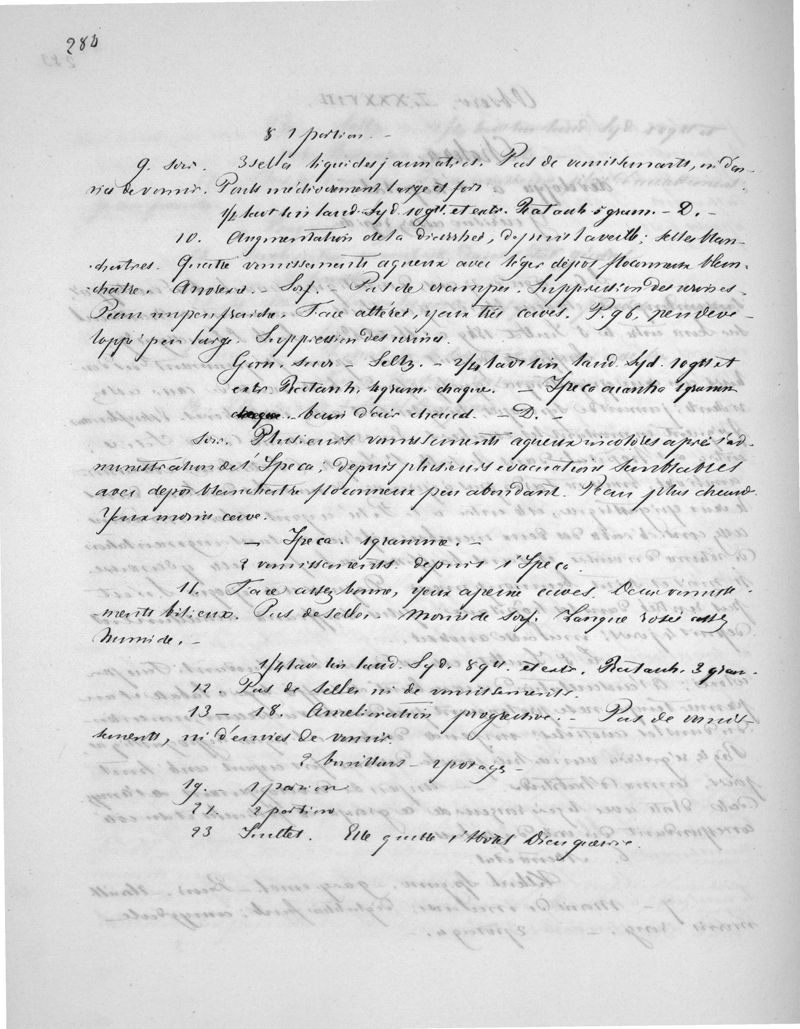 284
8 1 portion. –
9. soir. 3 selles liquides jaunatres. Pas de vomissements, ni d'en-
vies de vomir. Pouls médiocrement large et fort
1/2 lavt lin laud. Syd. 10 gtt. et extr. Ratanh 5 gram. – D. –
10. Augmentation de la diarrhée, depuis la veille; selles blan-
chatres. Quatre vomissements aqueux avec léger dépot floconneux blan-
chatre. Anorexie. – Soif. – Pas de crampes. Suppression des urines.
Peau un peu froide. Face altérée, yeux très caves. P. 96, peu déve-
loppé peu large. Suppression des urines.
Gom. sucr – Seltz. – 2/4 lavt lin, laud. Syd. 10 gtt et
extr. Ratanh, 4 gram. chaque. – Ipecacuanha 1 gramm
– bain d'air chaud. – D. –
Soir. Plusieurs vomissements aqueux incolores après l'ad-
ministration de l'Ipeca; depuis plusieurs évacuations semblables
avec dépot blanchatre floconneux peu abondant. Peau plus chaude.
Yeux moins caves.
– Ipeca. 1 gramme. –
2 vomissements depuis l'Ipeca.
11. Face assez bonne, yeux à peine caves. Deux vomisse-
ments bilieux. Pas de selles. Moins de soif. Langue rosée assez
humide. –
1/4 lavt lin laud. Syd. 8 gtt. et extr. Ratanh. 3 gram.
12. Pas de selles ni de vomissements.
13 – 18. Amélioration progressive. – Pas de vomis-
sements, ni d'envies de vomir.
2 bouillons – 2 potages –
19. 1 portion
21. 2 portion
23 Juillet. Elle quitte l'Hotel Dieu guérie.